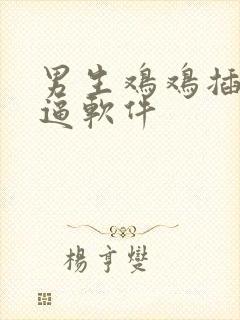 男生鸡鸡插
逼軟件
楊亨燮